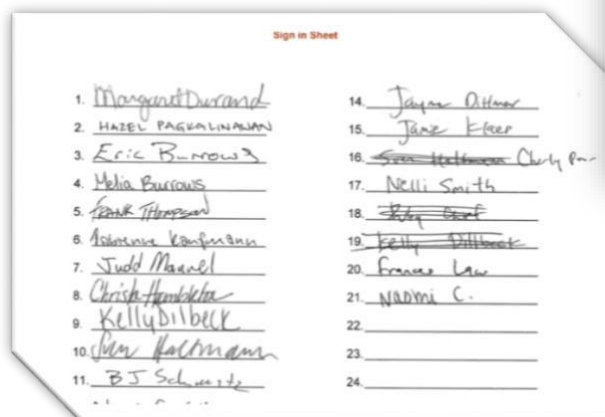 Sign in Sheet
1. Margaret Durand
2. HAZEL PAGKALINAWAN
3. Eric Burrows
4. Melia Burrows
5. FRANK THOMPSON
6. Kaufmann
7. Judd Mannel
8. Christa Hambleton
9. Kelly Dilbeck
10. Sven Haltmann
11. BJ Schwartz
14. Jayme Dittmar
15. Jane
16. Charly
17. Nelli Smith
18.
19. Kelly Dillbeck
20. Frances Law
21. NAOMI C.
22.
23.
24.